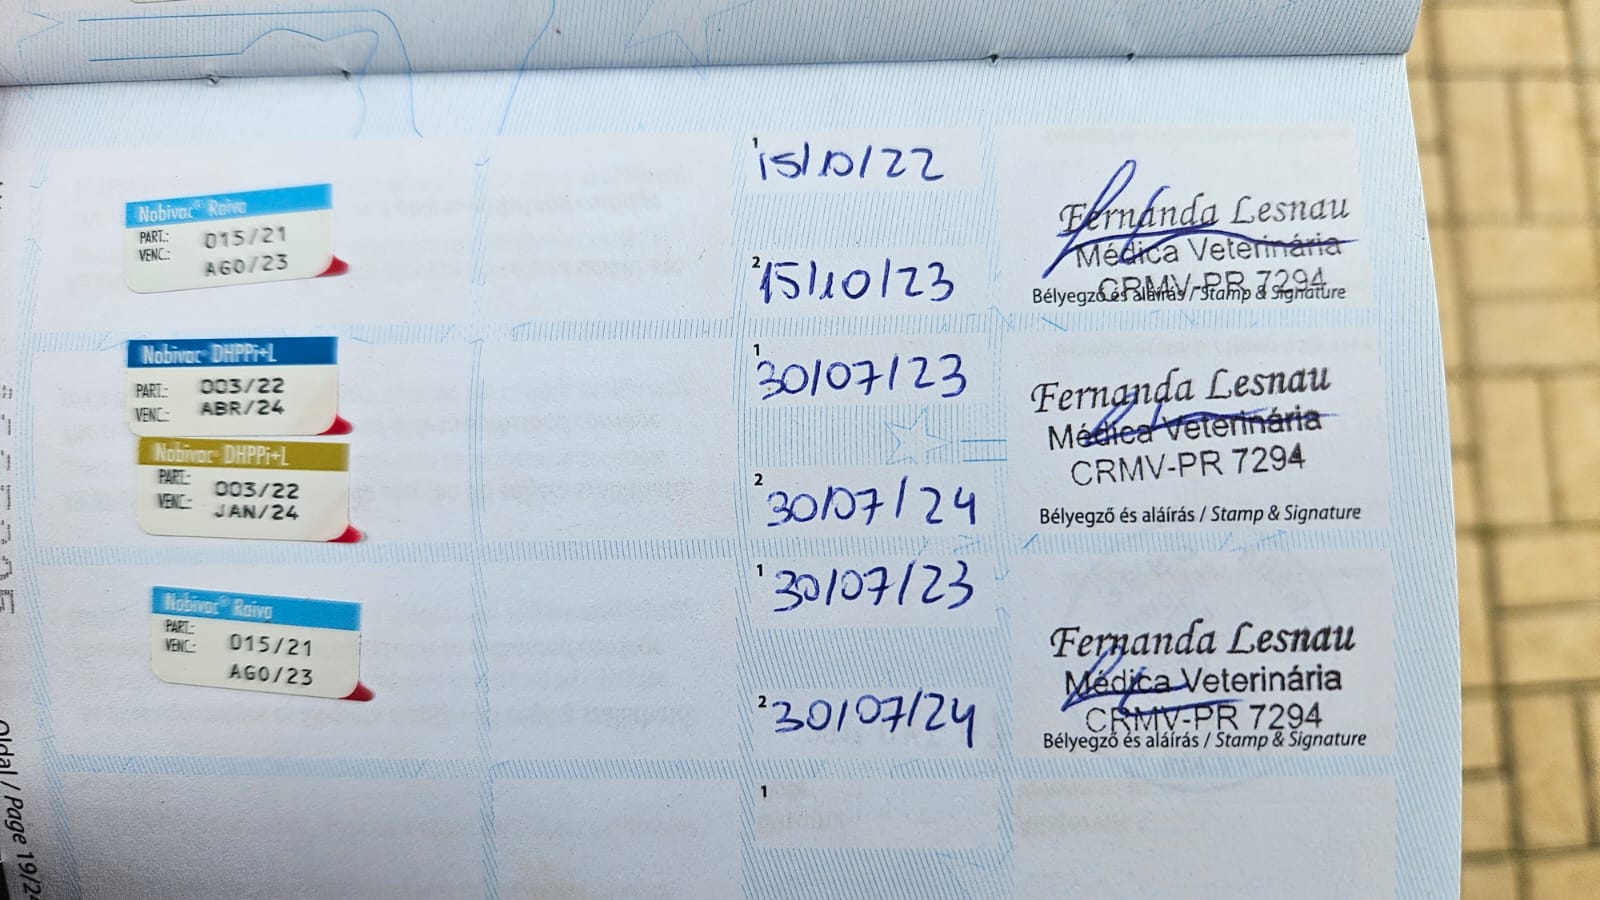 1
15/10/22
Nobivac® Raiva
PART.: 015/21
VENC.: AGO/23
2
15/10/23
Fernanda Lesnau
Médica Veterinária
CRMV-PR 7294
Bélyegző és aláírás / Stamp & Signature
Nobivac® DHPPi+L
PART.: 003/22
VENC.: ABR/24
1
30/07/23
Fernanda Lesnau
Médica Veterinária
CRMV-PR 7294
Nobivac® DHPPi+L
PART.: 003/22
VENC.: JAN/24
2
30/07/24
Bélyegző és aláírás / Stamp & Signature
1
30/07/23
Nobivac® Raiva
PART.: 015/21
VENC.: AGO/23
Fernanda Lesnau
Médica Veterinária
CRMV-PR 7294
2
30/07/24
Bélyegző és aláírás / Stamp & Signature
1
Oldal / Page 19/2